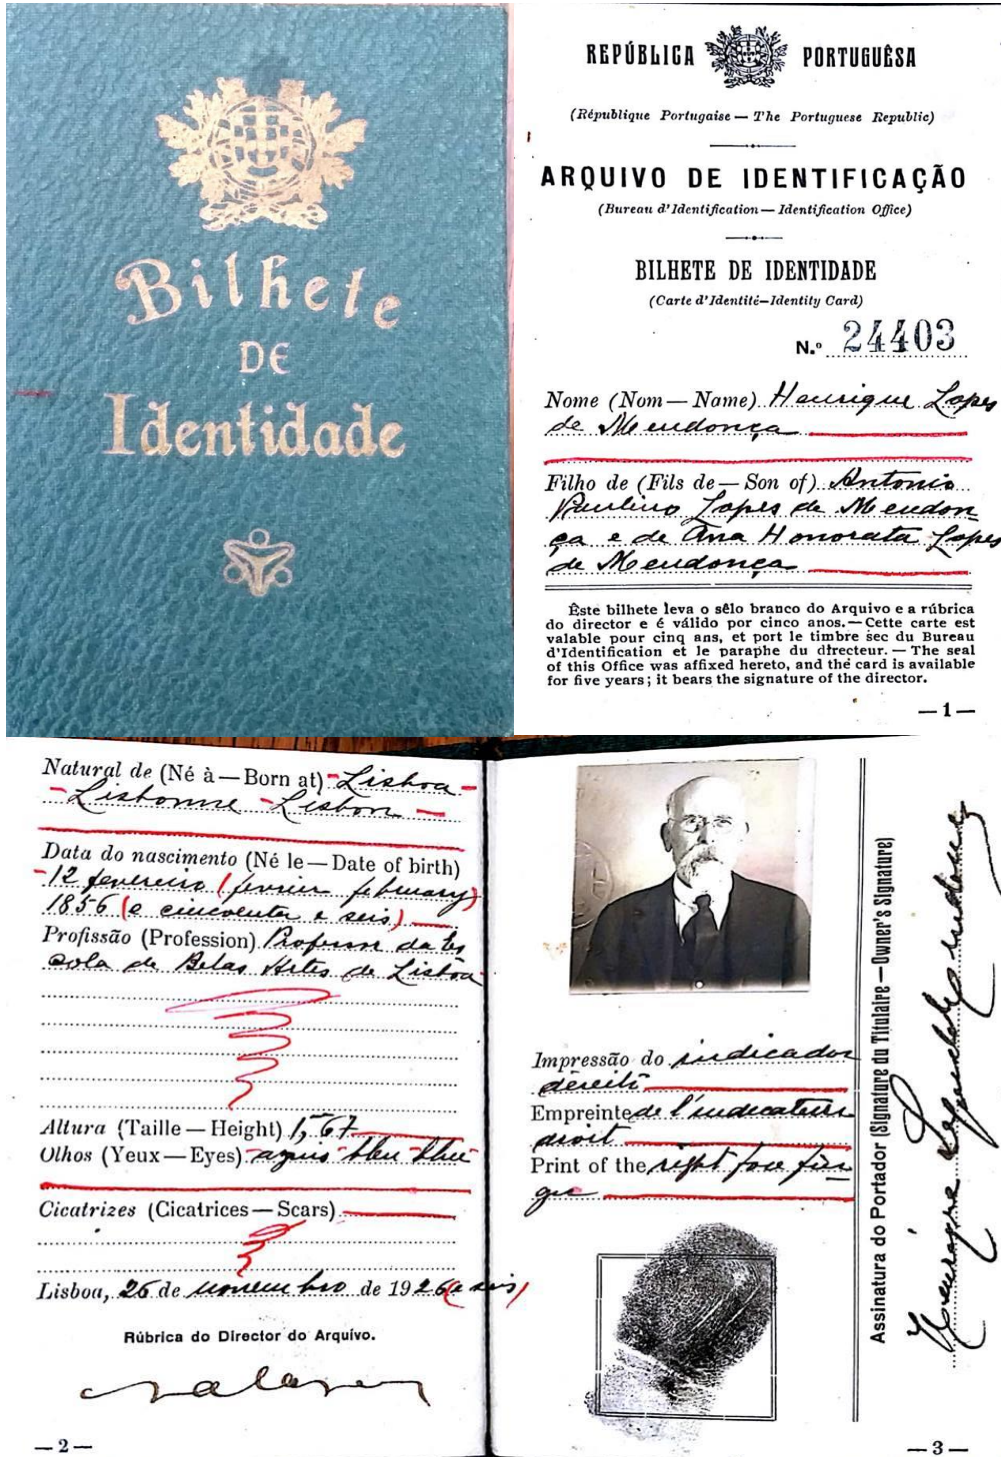 Bilhete
DE
Identidade
REPÚBLICA PORTUGUÊSA
(République Portugaise — The Portuguese Republic)
ARQUIVO DE IDENTIFICAÇÃO
(Bureau d'Identification — Identification Office)
BILHETE DE IDENTIDADE
(Carte d'Identité—Identity Card)
N.º 24403
Nome (Nom — Name) Henrique Lopes
de Mendonça
Filho de (Fils de — Son of) Antonio
Paulino Lopes de Mendon-
ça e de Ana Honorata Lopes
de Mendonça
Êste bilhete leva o sêlo branco do Arquivo e a rúbrica
do director e é válido por cinco anos. — Cette carte est
valable pour cinq ans, et port le timbre sec du Bureau
d'Identification et le paraphe du directeur. — The seal
of this Office was affixed hereto, and the card is available
for five years; it bears the signature of the director.
—1—
Natural de (Né à — Born at) - Lisboa -
- Lisbonne - Lisbon -
Data do nascimento (Né le — Date of birth)
- 12 fevereiro (fevrier february)
1856 (e cincoenta e seis)
Profissão (Profession) Professor da Es
cola de Belas Artes de Lisboa
Altura (Taille — Height) 1,67
Olhos (Yeux — Eyes) - azues - bleu - blue
Cicatrizes (Cicatrices — Scars)
Lisboa, 26 de novembro de 1926 (e seis)
Rúbrica do Director do Arquivo.
—2—
Impressão do indicador
direito
Empreinte de l'indicateur
droit
Print of the right fore fin-
ger
Assinatura do Portador (Signature du Titulaire — Owner's Signature)
Henrique Lopes de Mendonça
—3—